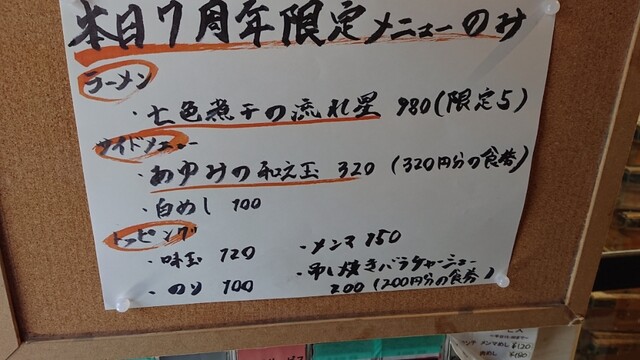 本日7周年限定メニューのみ
ラーメン
・七色煮干の流れ星 980(限定5)
サイドメニュー
・あゆみの和え玉 320 (320円分の食券)
・白めし 100
トッピング
・味玉 120
・メンマ 150
・のり 100
・吊し焼きバラチャーシュー
200 (200円分の食券)
メンマめし ¥120
¥180